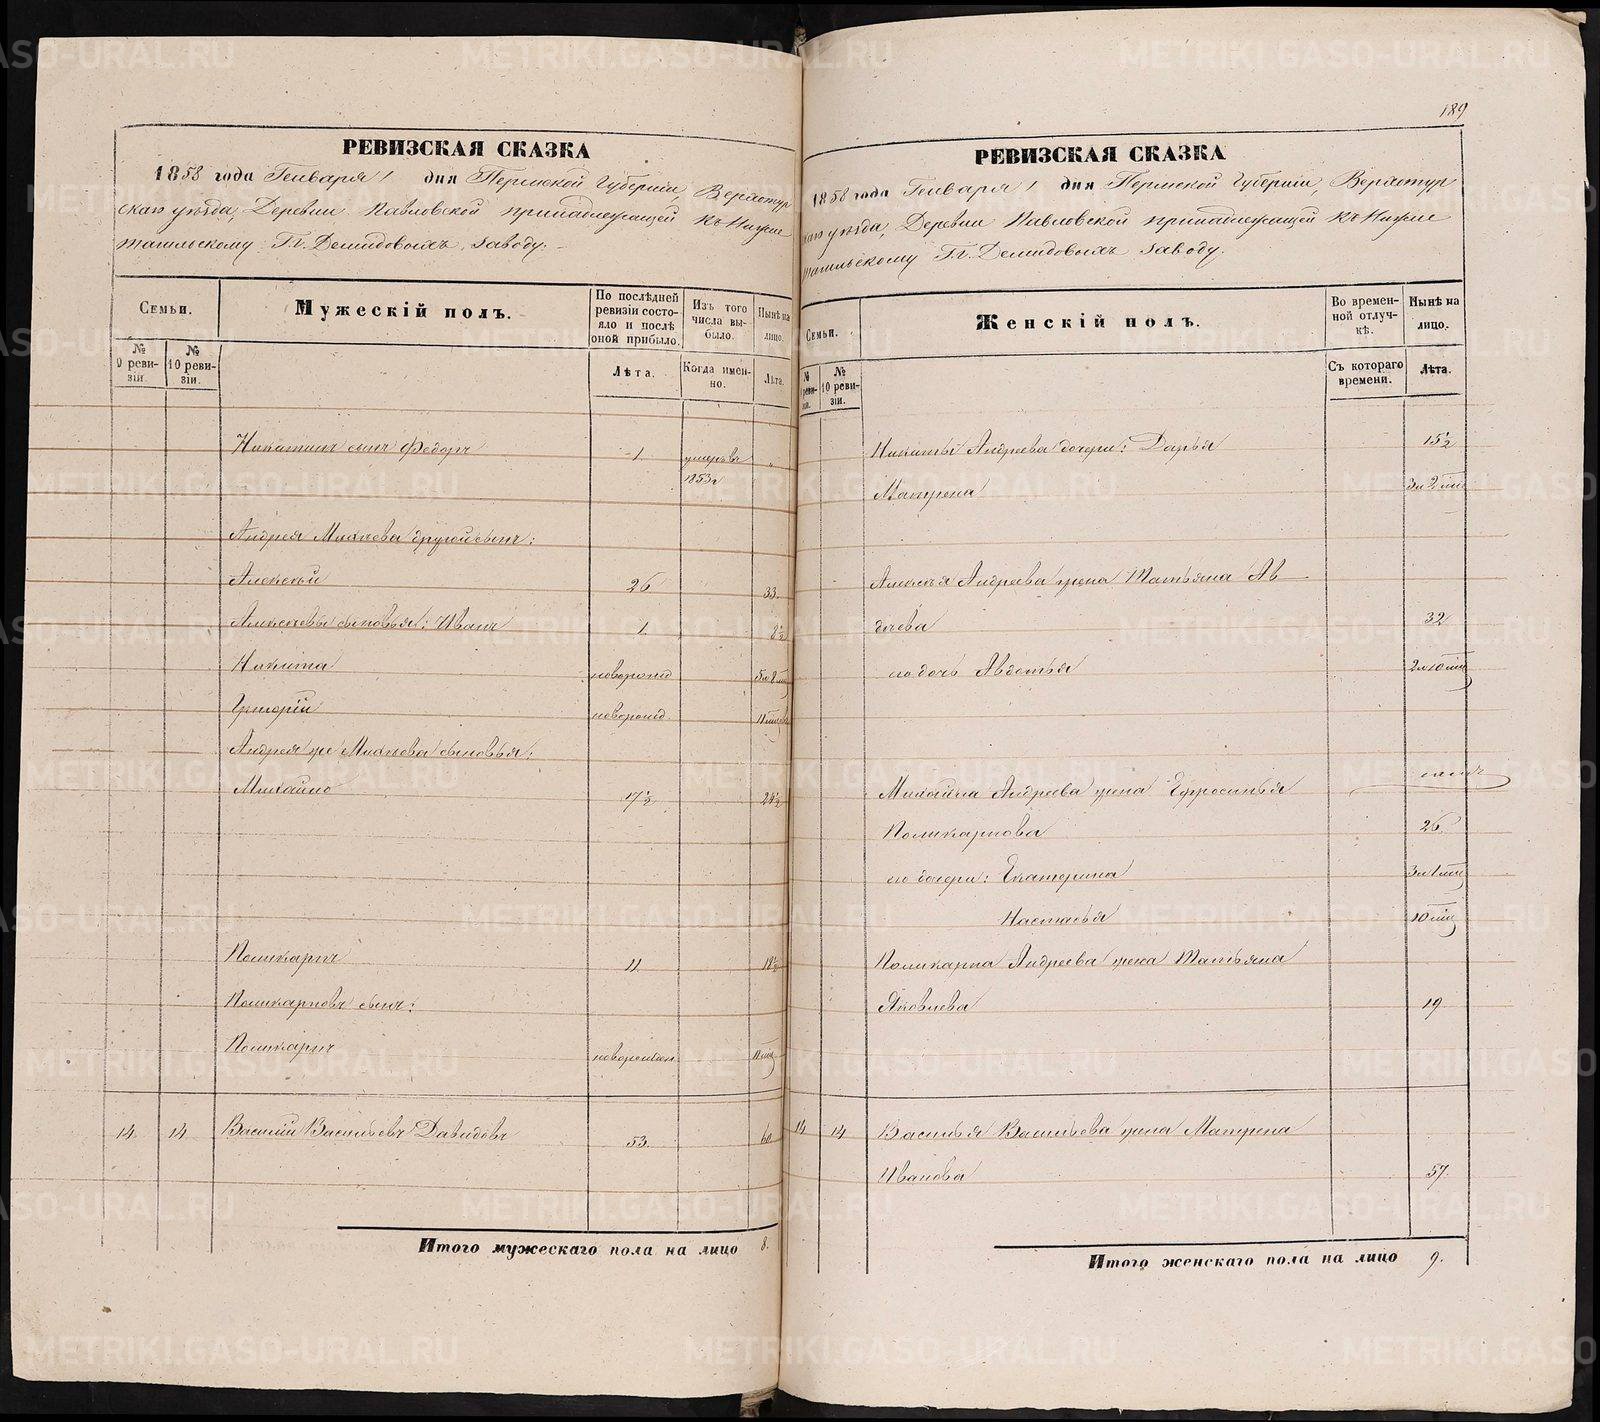 189
РЕВИЗСКАЯ СКАЗКА
1858 года Генваря 1 дня Пермской Губернии, Верхотур
скаго уѣзда, Деревни Павловской принадлежащей къ Нижне
тагильскому Г.г. Демидовыхъ заводу.
Семьи.
Мужескій полъ.
По послѣдней ревизіи состояло и послѣ оной прибыло.
Изъ того числа выбыло.
Нынѣ на лицо.
№ 9 ревизіи.
№ 10 ревизіи.
Лѣта.
Когда именно.
Лѣта.
Никитинъ сынъ Федоръ 1 умеръ въ 1853 г „
Андрея Михѣева другой сынъ:
Алексѣй 26 33.
Алексѣевы сыновья: Иванъ 1. 8½
Никита новорожд 5л 2 мц
Григорій новорожд. 11 мцовъ
Андрея же Михѣева сыновья:
Михайло 17½ 24½
Поликарпъ 11. 18½
Поликарповъ сынъ:
Поликарпъ новорожден. 11 мц
14. 14. Василій Васильевъ Давыдовъ 53. 60
Итого мужескаго пола на лицо 8.
РЕВИЗСКАЯ СКАЗКА
1858 года Генваря 1 дня Пермской Губерніи, Верхотур
скаго уѣзда, Деревни Павловской принадлежащей къ Нижне
тагильскому Г.г. Демидовыхъ заводу.
Семьи.
Женскій полъ.
Во временной отлучкѣ.
Нынѣ на лицо.
№ ревизіи.
№ 10 ревизіи.
Съ котораго времени.
Лѣта.
Никиты Андреева дочери: Дарья 15½
Матрена 3л 2 мц
Алексѣя Андреева жена Татьяна Ав
дѣева 32
ео дочь Авдотья 2л 10 мц
Михайла Андреева жена Ефросинья
Поликарпова 26.
ео дочери: Екатерина 3л 1 мц
Настасья 10 мц
Поликарпа Андреева жена Татьяна
Яковлева 19.
14 14 Василья Васильева жена Матрена
Иванова 57.
Итого женскаго пола на лицо 9.
METRIKI.GASO-URAL.RU